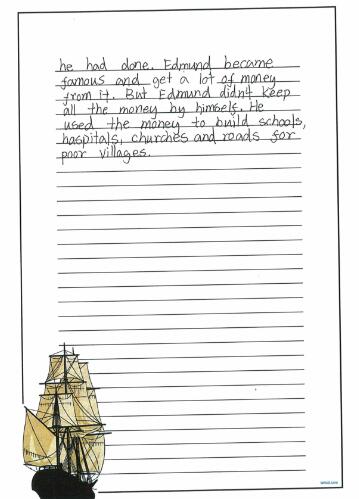 he had done. Edmund became
famous and get a lot of money
from it. But Edmund didn't keep
all the money by himself. He
used the money to build schools,
hospitals, churches and roads for
poor villages.